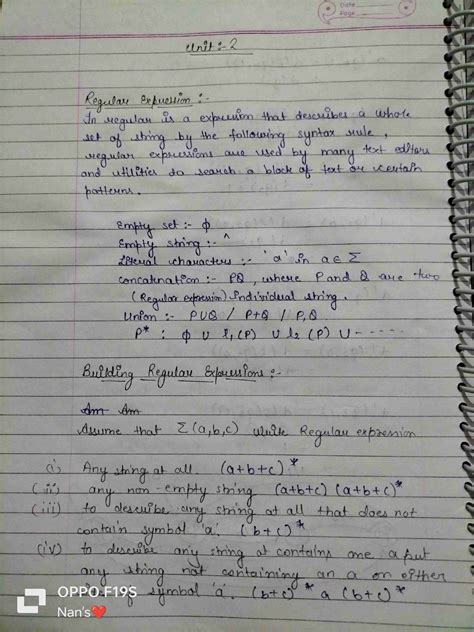 Date
Page
Unit :- 2
Regular Expression :-
In regular is a expression that describes a whole
set of string by the following syntax rule,
regular expressions are used by many text editors
and utilities to search a block of text or certain
patterns.
Empty set :- ϕ
Empty string :- ^
Literal characters :- 'a' in a ∈ Σ
concatenation :- PQ, where P and Q are two
(Regular expression) individual string.
Union :- PUQ / P+Q / P,Q
P* : ϕ ∪ L1(P) ∪ L2(P) ∪ -----
Building Regular Expressions :-
Am Am
Assume that Σ(a,b,c) write Regular expression
(i) Any string at all. (a+b+c)*
(ii) any non-empty string (a+b+c) (a+b+c)*
(iii) to describe any string at all that does not
contain symbol 'a'. (b+c)*
(iv) to describe any string at contains one a put
any string not containing an a on either
of symbol 'a'. (b+c)* a (b+c)*
OPPO F19S
Nan's❤